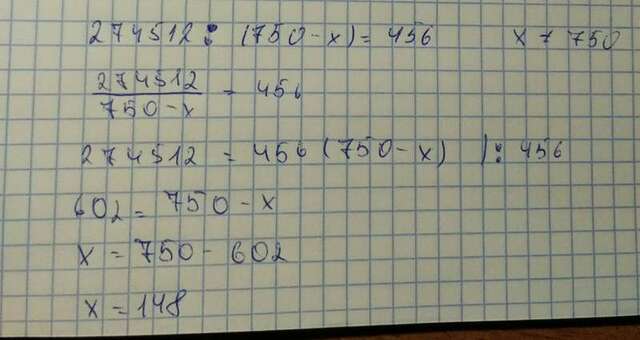 274512 : (750-x) = 456 x ≠ 750
274512
750-x = 456
274512 = 456 (750-x) | : 456
602 = 750-x
x = 750-602
x = 148